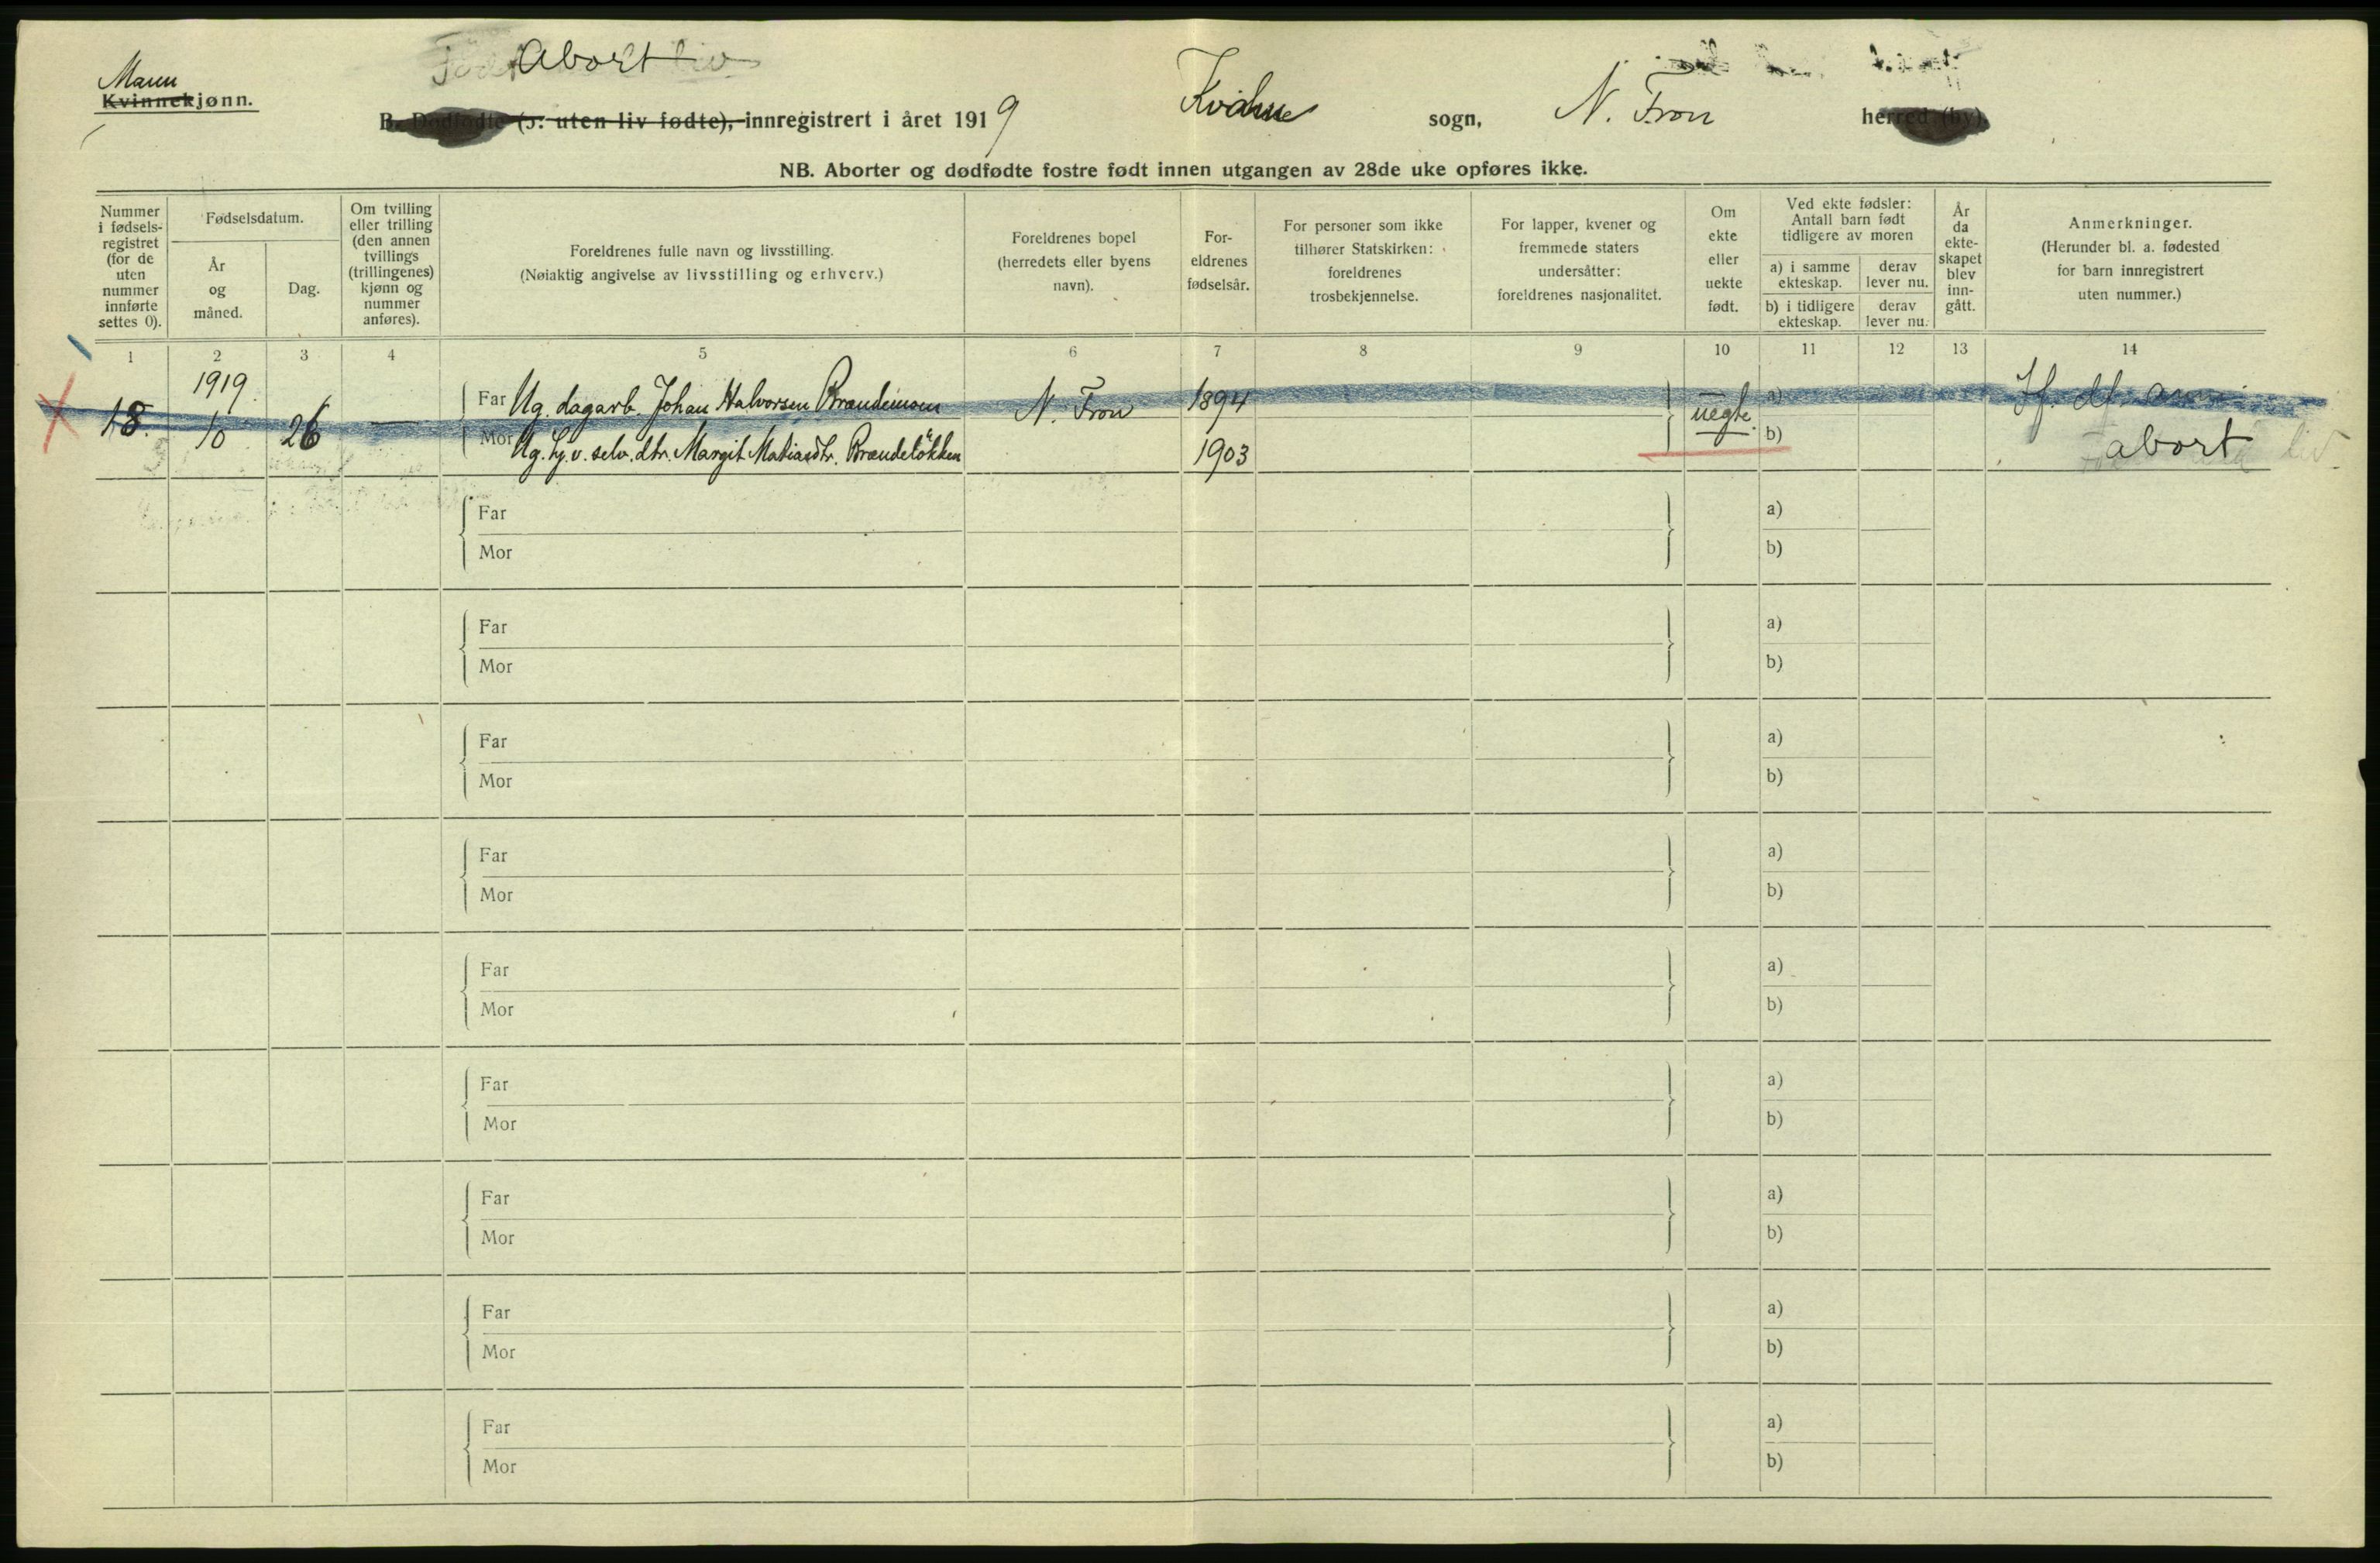 Mann
Kvinnekjønn.
Abort
B. Dødfødte (ɔ: uten liv fødte), innregistrert i året 1919 Kvikne sogn, N. Fron herred (by).
NB. Aborter og dødfødte fostre født innen utgangen av 28de uke opføres ikke.
Nummer i fødsels-registret (for de uten nummer innførte settes 0).
Fødselsdatum.
År og måned.
Dag.
Om tvilling eller trilling (den annen tvillings (trillingenes) kjønn og nummer anføres).
Foreldrenes fulle navn og livsstilling.
(Nøiaktig angivelse av livsstilling og erhverv.)
Foreldrenes bopel (herredets eller byens navn).
For-eldrenes fødselsår.
For personer som ikke tilhører Statskirken: foreldrenes trosbekjennelse.
For lapper, kvener og fremmede staters undersåtter: foreldrenes nasjonalitet.
Om ekte eller uekte født.
Ved ekte fødsler: Antall barn født tidligere av moren
a) i samme ekteskap.
derav lever nu.
b) i tidligere ekteskap.
derav lever nu.
År da ekte-skapet blev inn-gått.
Anmerkninger.
(Herunder bl. a. fødested for barn innregistrert uten nummer.)
1 2 3 4 5 6 7 8 9 10 11 12 13 14
1919
18. 10 26 —
Far Ug. dagarb. Johan Halvorsen Brændemoen N. Fron 1894 uegte. a)
Mor Ug. hj. v. selv. dtr. Margit Matiasdtr. Brændeløkken 1903 b) abort
Far a)
Mor b)
Far a)
Mor b)
Far a)
Mor b)
Far a)
Mor b)
Far a)
Mor b)
Far a)
Mor b)
Far a)
Mor b)
Far a)
Mor b)
Far a)
Mor b)